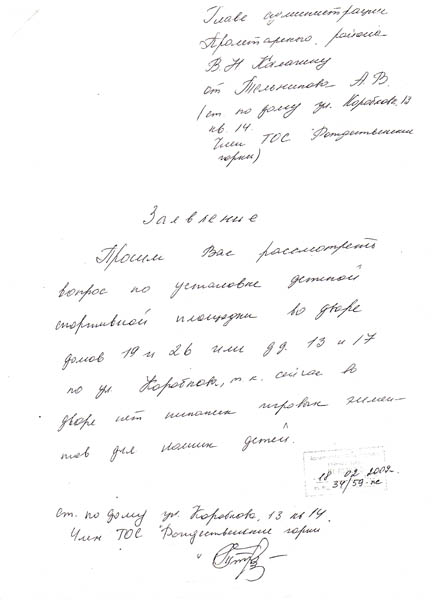 Главе администрации
Пролетарского района
В.Н Калачину
от Тельнинова А.В.
(ст. по дому ул. Коробкова 13
кв. 14
Член ТОС "Рождественские
горки)
Заявление
Просим Вас рассмотреть
вопрос по установке детской
спортивной площадки во дворе
домов 19 и 26 или дд. 13 и 17
по ул Коробкова, т.к. сейчас во
дворе нет никаких игровых элемен-
тов для наших детей.
18 02 2009г.
34/59-пс
ст. по дому ул. Коробкова, 13 кв 14.
Член ТОС "Рождественские горки
"